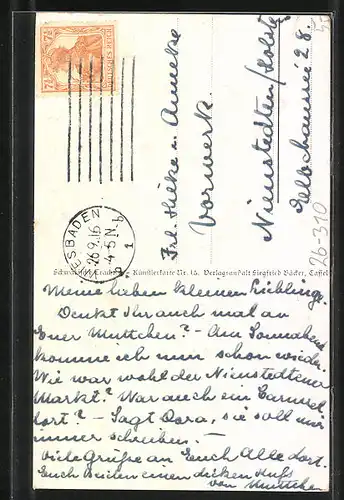 7½
DEUTSCHES REICH
7½
WIESBADEN
26.9.16
4-5 N.
1 b
Frl. Hilke u. Anneke
Vorwerk.
Nienstedten/Holst.
Elbchaussée 28.
26-310
Künstlerkarte Nr. 15. Verlagsanstalt Siegfried Bäcker, Cassel
Meine lieben kleinen Lieblinge.
Denkt Ihr auch mal an
Euer Muttchen? - Am Sonnabend
komme ich nun schon wieder.
Wie war wohl der Nienstedtener
Markt? War auch ein Caroussel
dort? - Sagt Dora, sie soll mir
immer schreiben. -
Viele Grüße an Euch Alle dort.
Euch Beiden einen dicken Kuß
von Muttchen